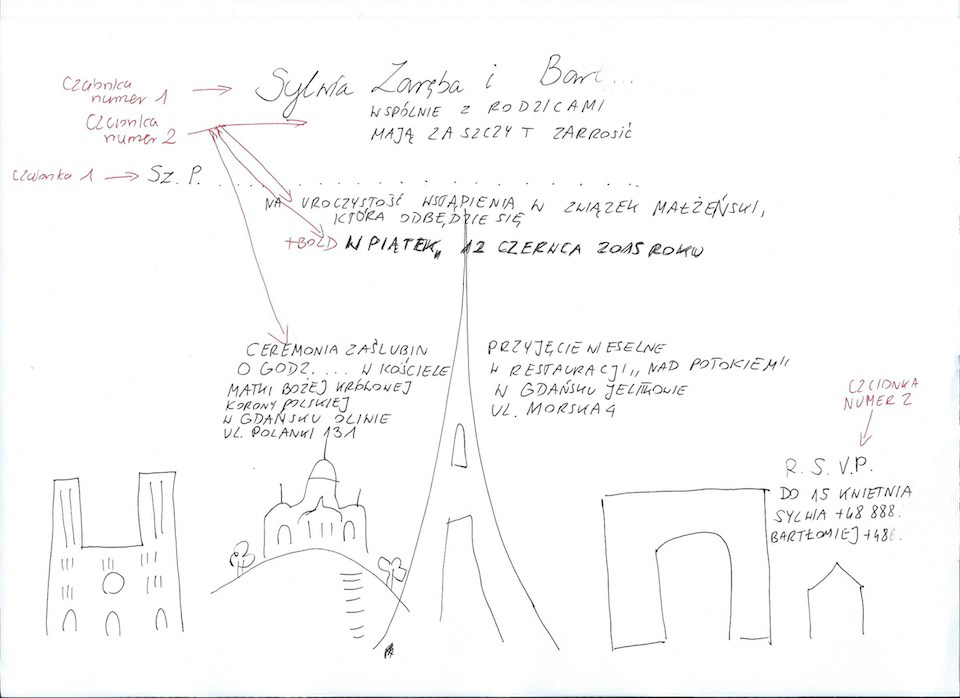 Czcionka
numer 1
Sylwia Zaręba i Bart...
WSPÓLNIE Z RODZICAMI
Czcionka
numer 2
MAJĄ ZASZCZYT ZARROSIĆ
Czcionka 1
Sz. P. . . . . . . . . . . . . .
NA UROCZYSTOŚĆ WSTĄPIENIA W ZWIĄZEK MAŁŻEŃSKI,
KTÓRA ODBĘDZIE SIĘ
+BOLD
W PIĄTEK,, 12 CZERWCA 2015 ROKU
CEREMONIA ZAŚLUBIN
O GODZ. ... W KOŚCIELE
MATKI BOŻEJ KRÓLOWEJ
KORONY POLSKIEJ
W GDAŃSKU OLIWIE
UL. POLANKI 131
PRZYJĘCIE WESELNE
W RESTAURACJI ,,NAD POTOKIEM"
W GDAŃSKU JELITKOWIE
UL. MORSKA 4
CZCIONKA
NUMER 2
R.S.V.P.
DO 15 KWIETNIA
SYLWIA +48 888.
BARTŁOMIEJ +48